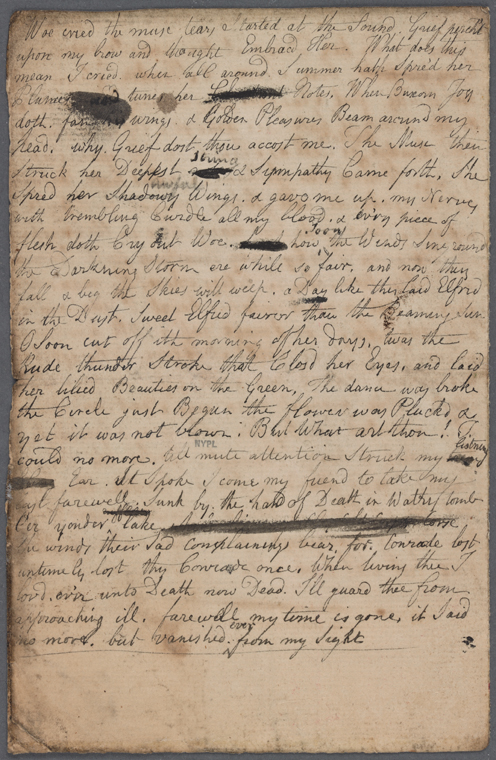 Woe cried the muse tears Started at the Sound, Grief perch't
upon my brow and thought Embrac'd Her. What does this
mean I cried. when all around Summer hath Spre'd her
Plumes tunes her Notes. When Buxom Joy
doth. fan wings. & Golden Pleasures Beam around my
head. why. Grief dost thou accost me. The Muse then
Struck her Deepest String & Sympathy Came forth, She
Spred her Shadowy Wings. & gave me up. my Nerves
with trembling Curdle all my blood. & every piece of
flesh doth Cry out Woe. Soon how the Winds Sing round
the Darkning Storm ere while so fair. and now they
fall & beg the Skies will weep. a Day like this laid Elfrid
in the Dust, Sweet Elfrid fairer than the Beaming Sun
O Soon cut off ith morning of her days, twas the
Rude thunder Stroke that Closd her Eyes. and laid
her lilied Beauties on the Green, The dance was broke
the Circle just Begun the flower was Pluckd &
yet it was not blown. But What art thou! I
NYPL
could no more. till mute attention Struck my listning
Ear. It Spoke I come my friend to take my
last farewell. Sunk by. the hand of Death in Watry tomb
Oer yonder. lake
the winds their Sad complainings bear. for. Conrade lost
untimely lost thy Conrade once. When living thee I
lovd. ever unto Death now Dead. I'll guard thee from
approaching ill. farewell my time is gone, it Said
no more. but vanished. ever from my Sight